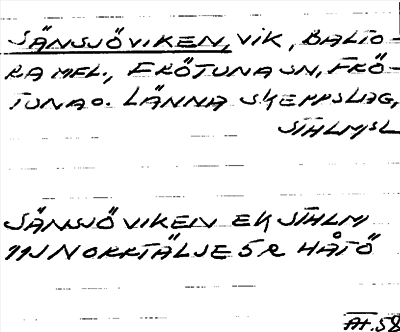 SÄNSJÖVIKEN, VIK, BALTO-
RA MFL., FRÖTUNA SN, FRÖ-
TUNA O. LÄNNA SKEPPSLAG,
STHLMSL
SÄNSJÖVIKEN EK STHLM
11J NORRTÄLJE 5R HÅTÖ
AT. 58